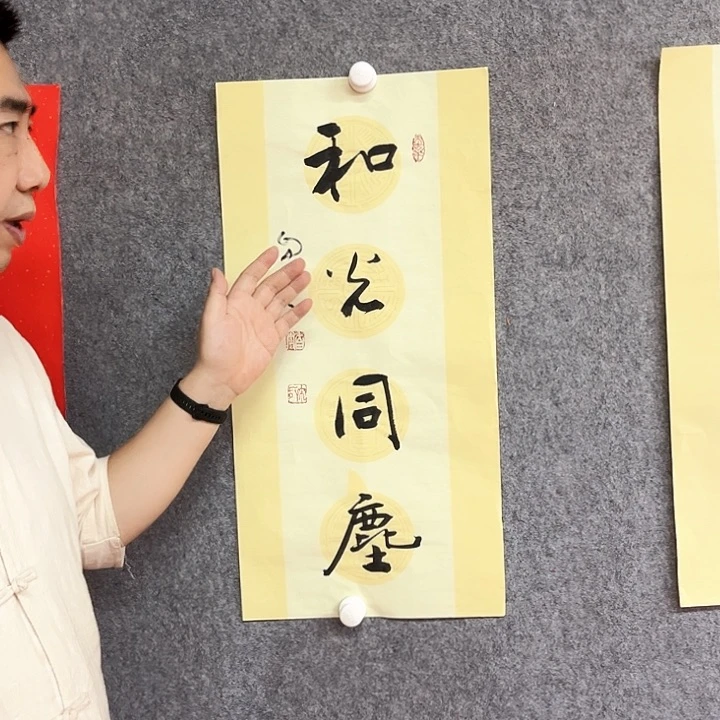 和
光
同
塵